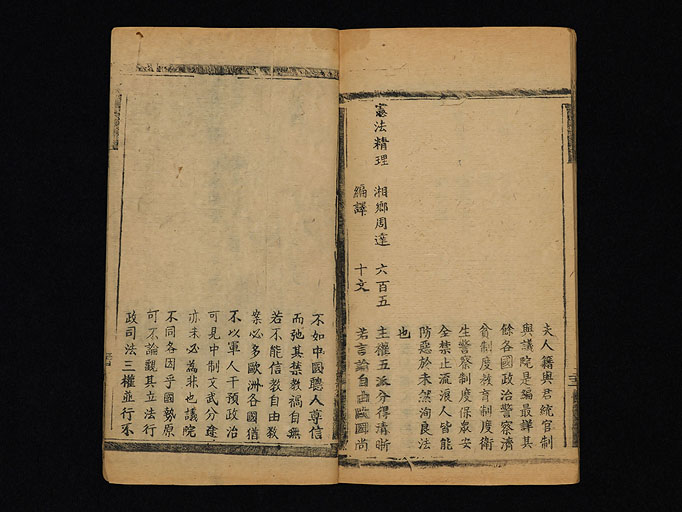 夫人籍與君統官制
與議院是編最詳其
餘各國政治警察濟
貧制度教育制度衛
生警察制度保眾安
全禁止流浪人皆能
防惡於未然洵良法
也
憲法精理 湘鄉周逵 編譯 六百五十文
主權五派分得清晰
若言論自由歐國尚
不如中國聽人尊信
而弛其禁教禍自無
若不能信教自由教
案必多歐洲各國猶
不以軍人干預政治
可見中制文武分途
亦未必為非也議院
不同各因乎國勢原
可不論觀其立法行
政司法三權並行不